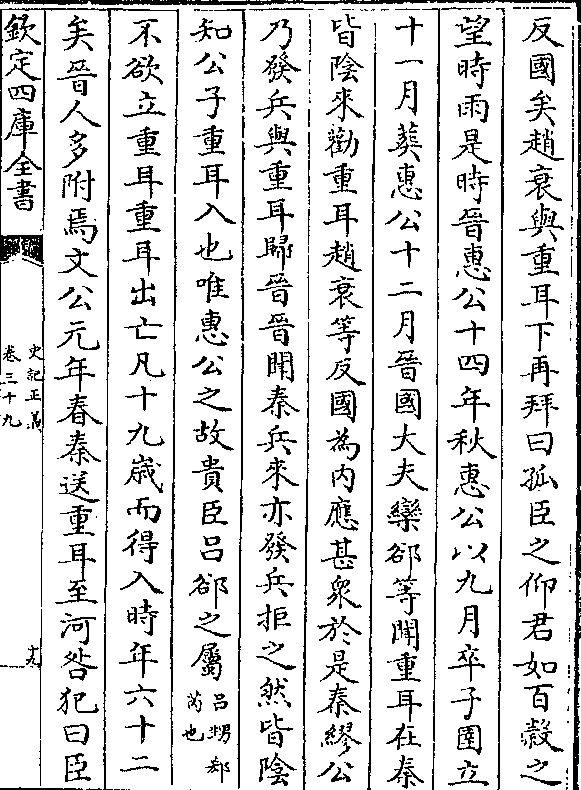 反國矣趙衰與重耳下再拜曰孤臣之仰君如百穀之
望時雨是時晉惠公十四年秋惠公以九月卒子圉立
十一月葬惠公十二月晉國大夫欒郤等聞重耳在秦
皆陰來勸重耳趙衰等反國為內應甚衆於是秦繆公
乃發兵與重耳歸晉晉聞秦兵來亦發兵拒之然皆陰
知公子重耳入也唯惠公之故貴臣吕郤之屬吕甥郄
芮也
不欲立重耳重耳出亡凡十九歳而得入時年六十二
矣晉人多附焉文公元年春秦送重耳至河咎犯曰臣
欽定四庫全書
史記正義
卷三十九
十九